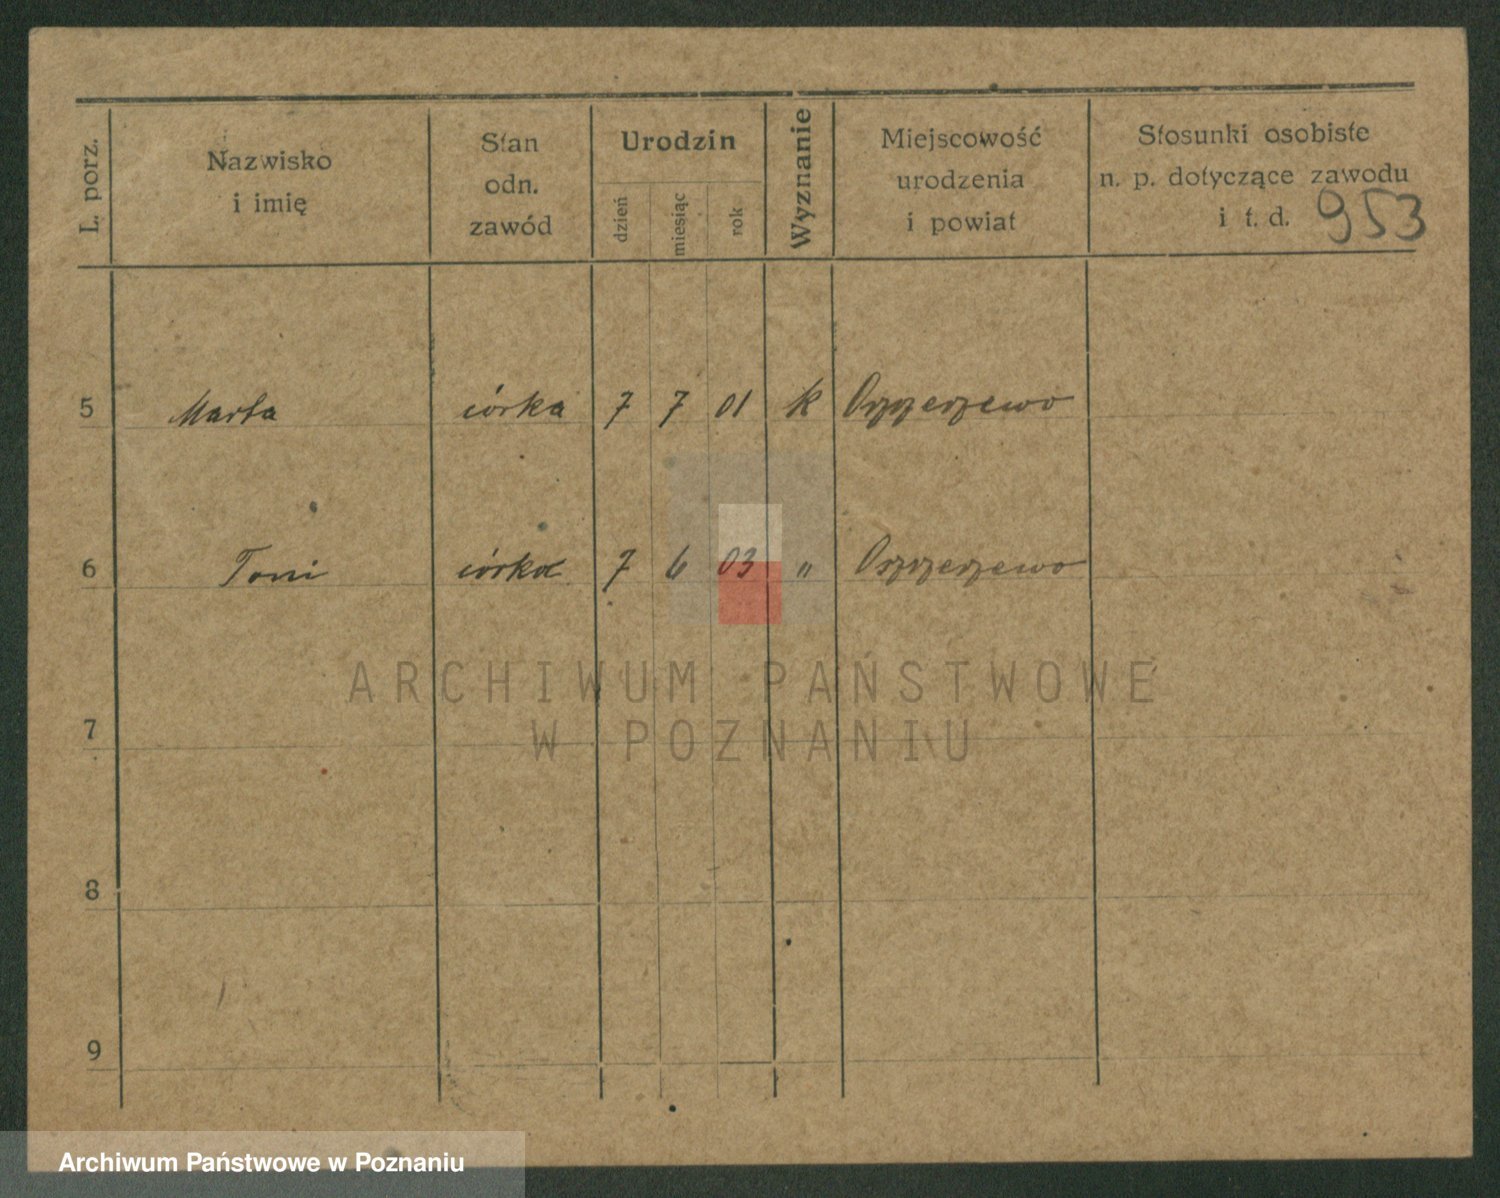 L. porz.
Nazwisko
i imię
Stan
odn.
zawód
Urodzin
dzień
miesiąc
rok
Wyznanie
Miejscowość
urodzenia
i powiat
Stosunki osobiste
n. p. dotyczące zawodu
i t. d. 953
5 Marta córka 7 7 01 k
6 Toni córka 7 6 03 "
7
8
9
ARCHIWUM PAŃSTWOWE
W POZNANIU
Archiwum Państwowe w Poznaniu